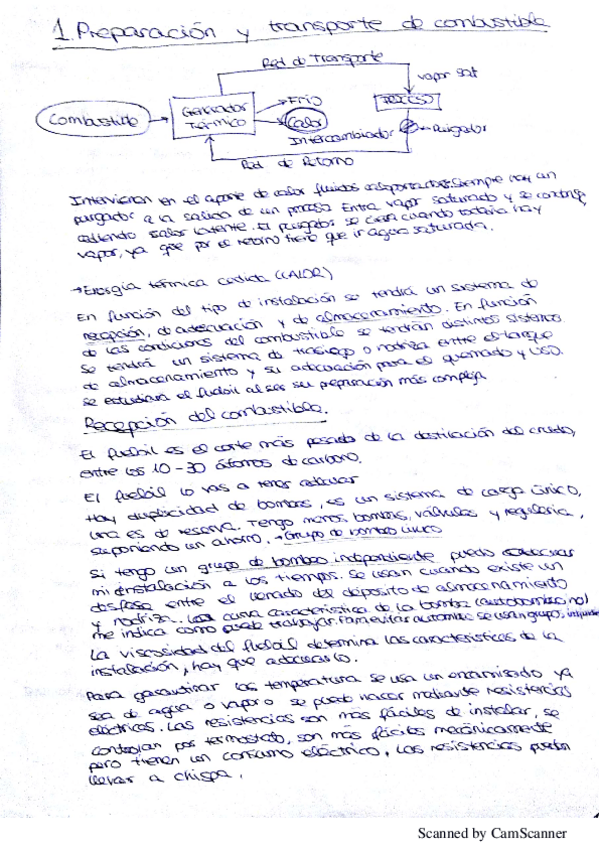 1. Preparación y transporte de combustible
Red de Transporte
vapor sat
Combustible
Generador
Térmico
Frío
Calor
PROCESO
Intercambiador
Purgador
Red de Retorno
Intervienen en el aporte de calor fluidos caloportadores. Siempre hay un
purgador a la salida de un proceso. Entra vapor saturado y se condensa,
cediendo calor latente. El purgador se cierra cuando todavía hay
vapor, ya que por el retorno tiene que ir agua saturada.
→ Energía térmica cedida (CALOR)
En función del tipo de instalación se tendrá un sistema de
recepción, de adecuación y de almacenamiento. En función
de las condiciones del combustible se tendrán distintos sistemas.
Se tendrá un sistema de trasiego o nodriza entre el tanque
de almacenamiento y su adecuación para el quemado y uso.
Se estudiará el fueloil al ser su preparación más compleja
Recepción del combustible.
El fueloil es el corte más pesado de la destilación del crudo,
entre los 10-30 átomos de carbono.
El fueloil lo vas a tener adecuar
Hay duplicidad de bombas, es un sistema de carga único,
una es de reserva. Tengo menos bombas, válvulas y
suponiendo un ahorro. → Grupo de bombeo único
Si tengo un grupo de bombeo independiente puedo adecuar
mi instalación a los tiempos. Se usan cuando existe un
desfase entre el llenado del depósito de almacenamiento
y nodriza. curva característica de la bomba
me indica como puede trabajar. Para evitar se usan grupos
La viscosidad del fueloil determina las características de la
instalación, hay que adecuarlo.
Para garantizar las temperatura se usa un encamisado ya
sea de agua o vapor o se puede hacer mediante resistencias
eléctricas. Las resistencias son más fáciles de instalar, se
controlan por termostato, son más fáciles mecánicamente
pero tienen un consumo eléctrico, las resistencias pueden
llevar a chispa.
Scanned by CamScanner